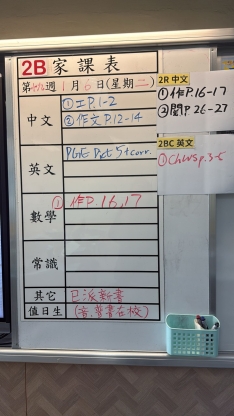 2B 家課表
第十九週 1月6日(星期二)
中文
① 工P.1-2
② 作文P.12-14
英文
PGE Dict 5+corr.
數學
① 作P.16,17
常識
其它
已派新書
值日生
2R 中文
①作P.16-17
②閱P.26-27
2BC 英文
①ChWS p.3-5